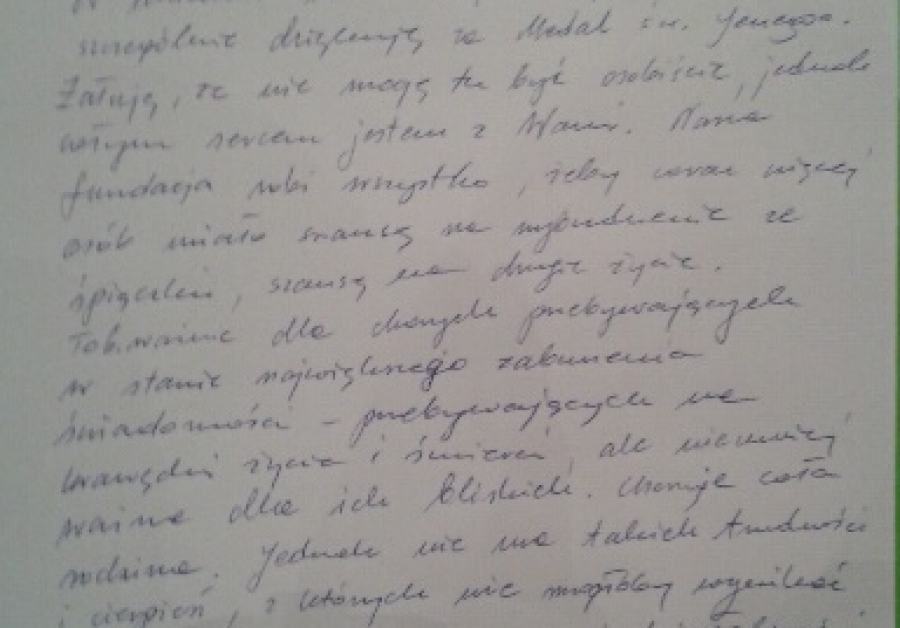 szczególnie dziękuję za Medal św. Jerzego.
Żałuję, że nie mogę tu być osobiście, jednak
całym sercem jestem z Wami. Nasza
fundacja robi wszystko, żeby coraz więcej
osób miało szansę na wybudzenie ze
śpiączki, szansę na drugie życie.
To b. ważne dla chorych przebywających
w stanie największego zaburzenia
świadomości - przebywających na
krawędzi życia i śmierci, ale nie mniej
ważne dla ich bliskich. Choruje cała
rodzina. Jednak nie ma takich trudności
i cierpień, z których nie mogłoby wyniknąć